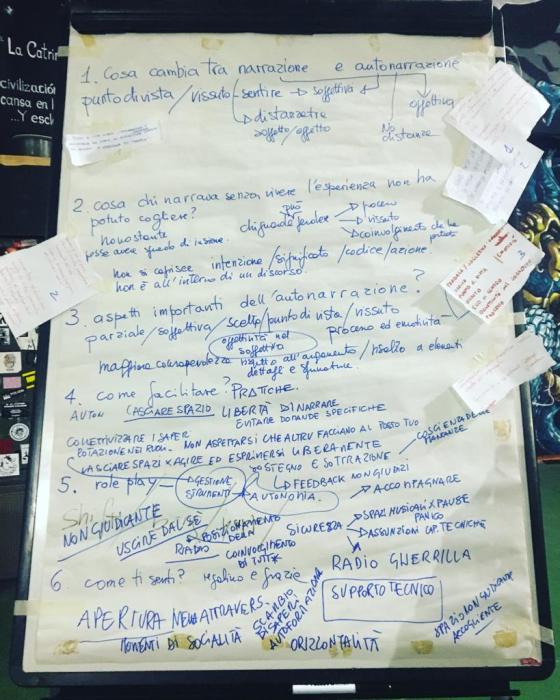 La Catrin
civilización
cansa en l
...Y escl
1. Cosa cambia tra narrazione e autonarrazione
punto di vista / vissuto - sentire → soggettiva
oggettiva
distanze tre
soggetto/oggetto
No distanze
2. cosa chi narrava senza vivere l'esperienza non ha
potuto cogliere?
può
chi guarda perdere
processo
vissuto
coinvolgimento
nonostante
possa avere sguardo di insieme.
non si capisce intenzione/significato/codice/azione.
non è all'interno di un discorso.
3. aspetti importanti dell'autonarrazione?
parziale/soggettiva/scelta/punto di vista/vissuto
oggettività nel
soggettivo
processo ed emotività
maggiore consapevolezza rispetto all'argomento / risalto a elementi
dettagli e sfumature
4. come facilitare? PRATICHE.
AUTON LASCIARE SPAZIO LIBERTÀ DI NARRARE
EVITARE DOMANDE SPECIFICHE
COLLETTIVIZZARE I SAPERI
ROTAZIONE NEI RUOLI. NON ASPETTARSI CHE ALTRU FACCIANO AL POSTO TUO
LASCIARE SPAZI X AGIRE ED ESPRIMERSI LIBERAMENTE
COSCIENZA DELLE
MANCANZE
SOSTEGNO E SOTTRAZIONE
5. role play → GESTIONE
STRUMENTI → AUTONOMIA.
FEEDBACK NON GIUDIZI
ACCOMPAGNARE
NON GIUDICANTE
USCIRE DAL SÈ
POSITIONAMENTO
DELLA
RADIO
COINVOLGIMENTO
DI TUTT*
SICUREZZA
SPAZI MUSICALI X PAUSE
PANICO
ASSUNZIONI CAP. TECNICHE
RADIO GUERRILLA
6. come ti senti? regalino e grazie
SUPPORTO TECNICO
APERTURA NELL'ATTRAVERS.
MOMENTI DI SOCIALITÀ
SCAMBIO
DI SAPERI
AUTOFORMAZIONE
ORIZZONTALITÀ
SPAZIO NON GIUDICANTE
ACCOGLIENTE